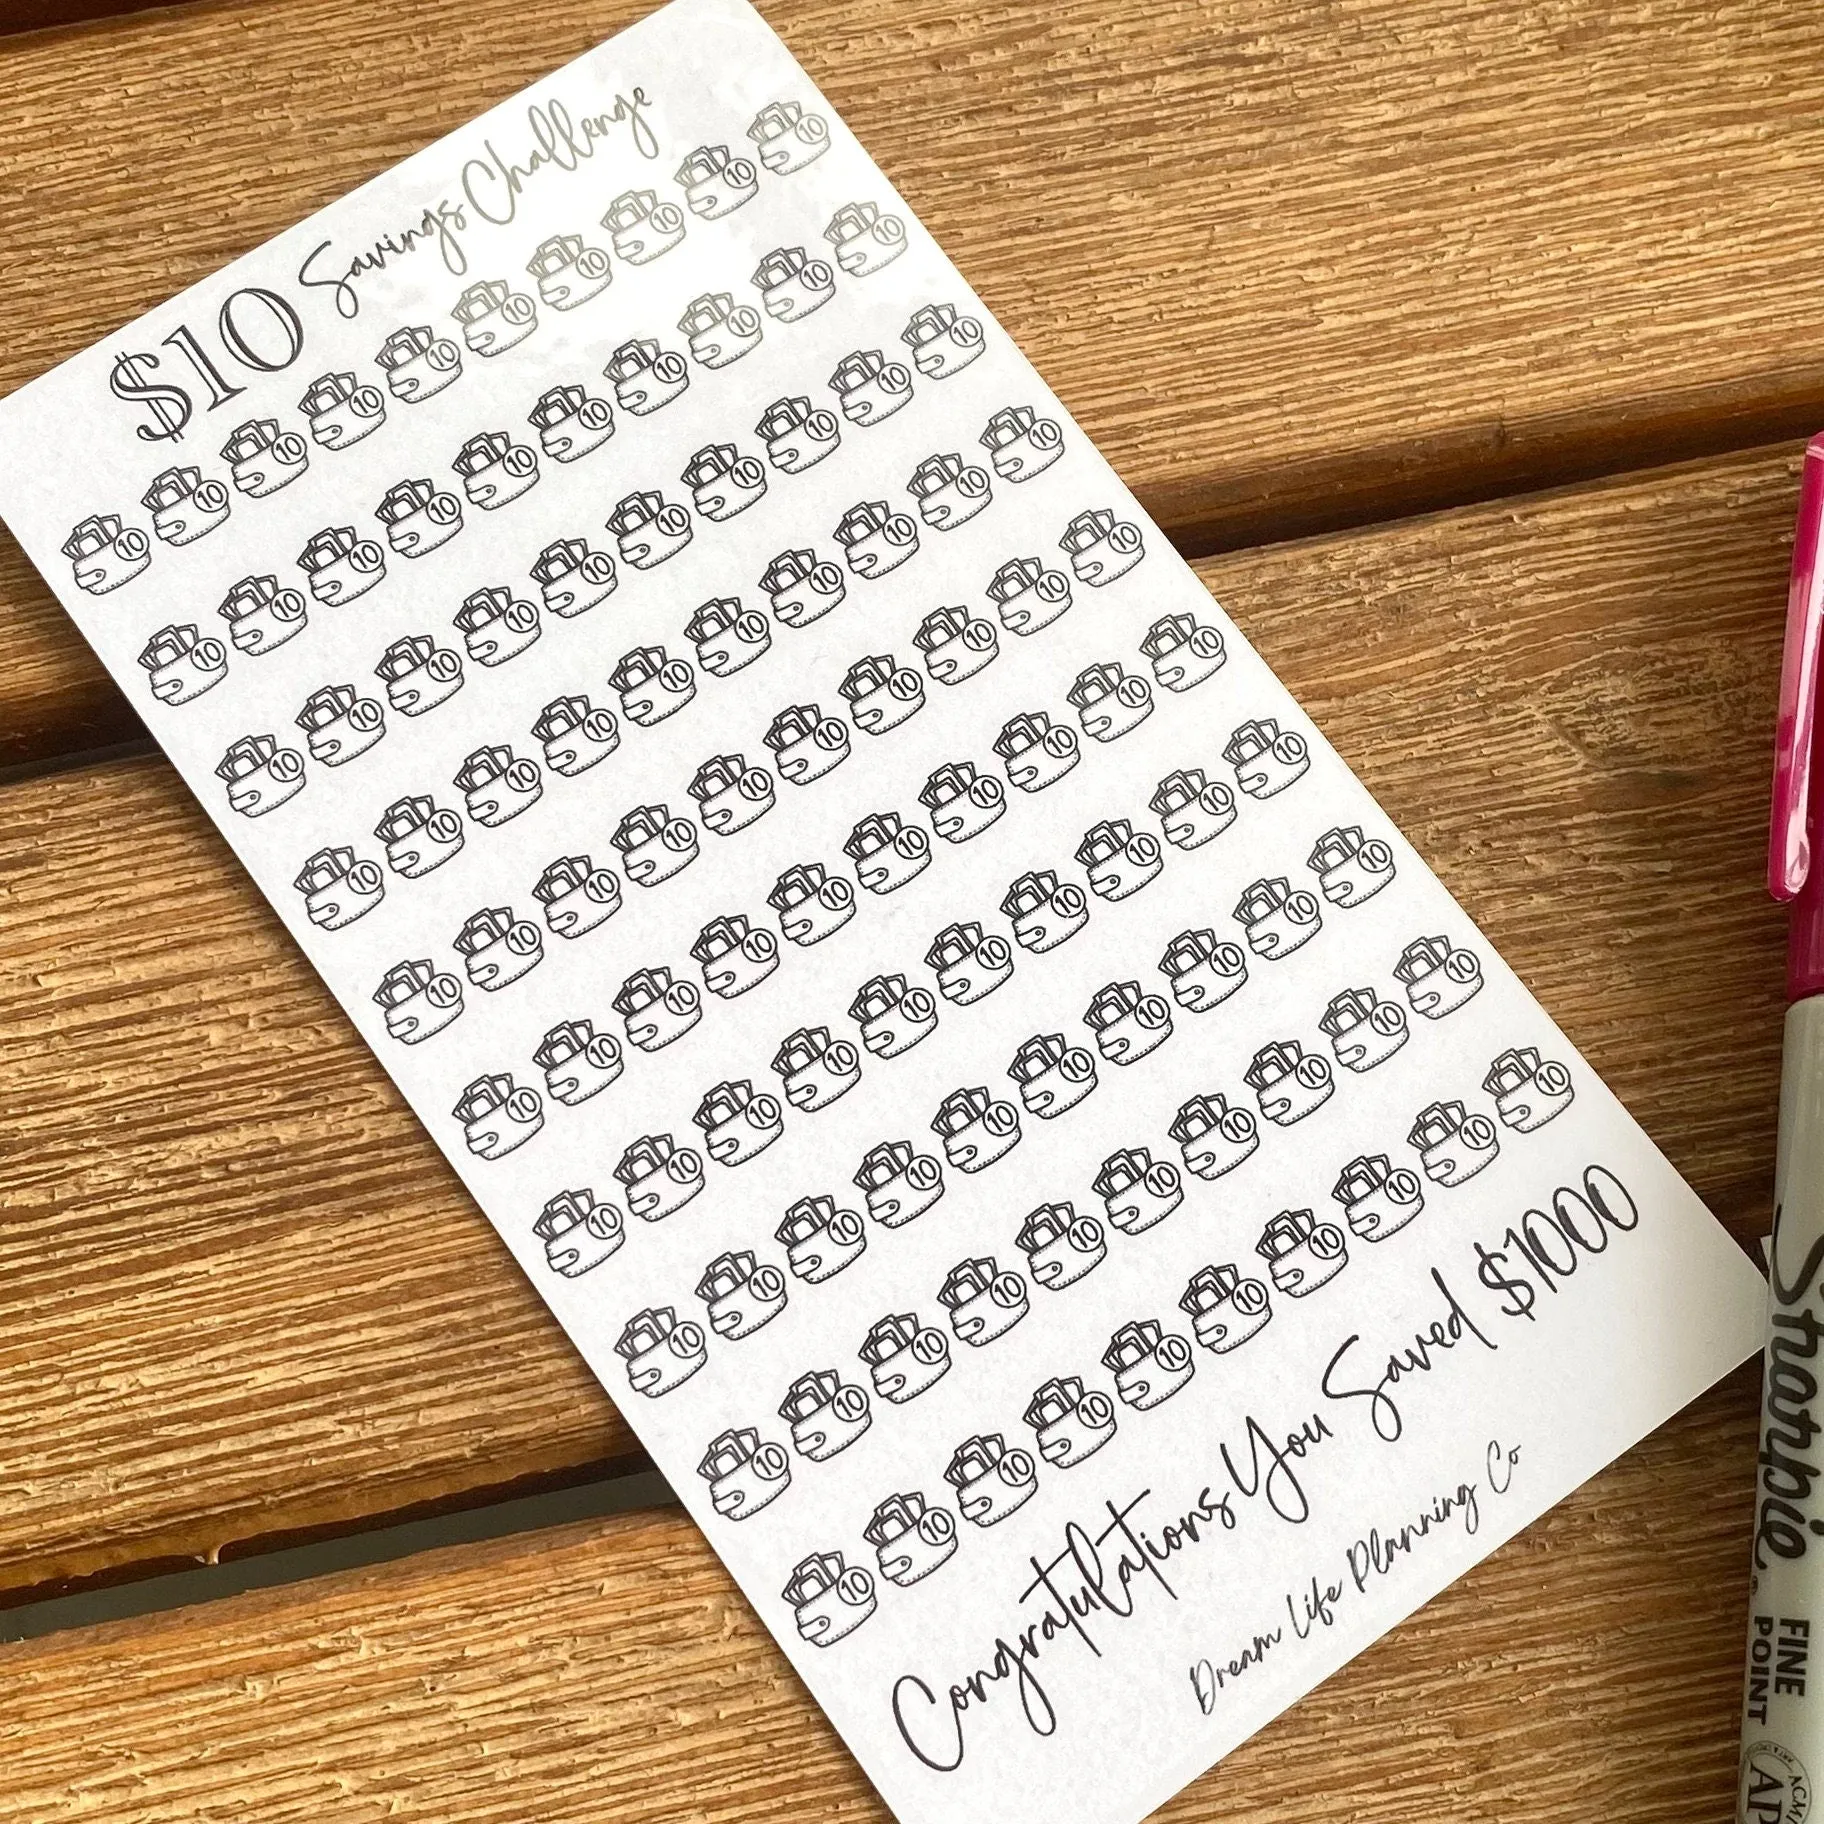 $10 Savings Challenge
10 10 10 10 10 10 10 10 10 10
10 10 10 10 10 10 10 10 10 10
10 10 10 10 10 10 10 10 10 10
10 10 10 10 10 10 10 10 10 10
10 10 10 10 10 10 10 10 10 10
10 10 10 10 10 10 10 10 10 10
10 10 10 10 10 10 10 10 10 10
10 10 10 10 10 10 10 10 10 10
10 10 10 10 10 10 10 10 10 10
10 10 10 10 10 10 10 10 10 10
Congratulations You Saved $1000
Dream Life Planning Co
Sharpie.
FINE
POINT
AP